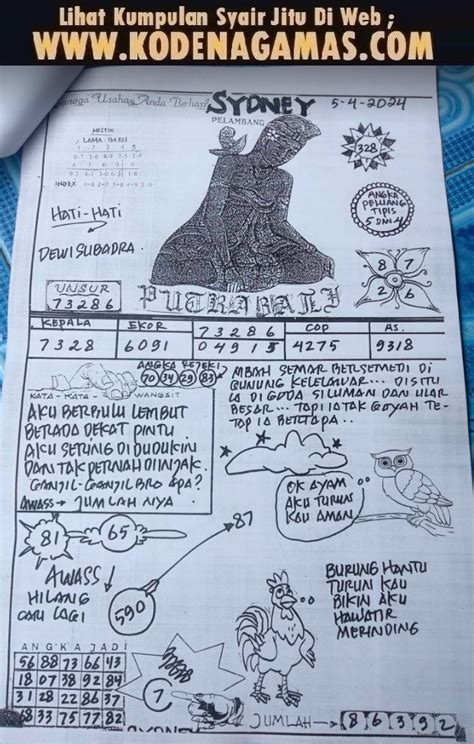 Lihat Kumpulan Syair Jitu Di Web ;
WWW.KODENAGAMAS.COM
Usaha Anda Berhasil
SYDNEY
5-4-2024
PELAMBANG
MISTIK
LAMA - BARU
INDEX
328
ANGKA
PELUANG
TIPIS
5 DAN 4
HATI-HATI
DEWI SUBADRA.
8 7
2 6
UNSUR
73286
PUTRA BALI
KEPALA EKOR 73286 COP AS.
7328 6091 04915 4275 9318
ANGKA REJEKI
70 34 29 83
KATA - KATA - WANGSIT
AKU BERBULU LEMBUT
BERADA DEKAT PINTU
AKU SERING DI DUDUKIN
DAN TAK PERNAH DIINJAK.
GANJIL-GANJIL BRO APA?
AWASS → JUMLAH NYA.
MBAH SEMAR BERSEMEDI DI
GUNUNG KELELAWAR... DISITU
IA DI GODA SILUMAN DAN ULAR
BESAR... TAPI IA TAK GOYAH TE-
TAP IA BERTAPA..
OK AYAM
AKU TURUN
KAU AMAN
81
65
87
AWASS
HILANG
CARI LAGI
590
BURUNG HANTU
TURUN KAU
BIKIN AKU
HAWATIR
MERINDING
ANGKA JADI
56 88 73 66 43
18 07 38 92 84
31 28 22 86 37
68 33 75 77 82
7
SYDNEY
JUMLAH → 86392